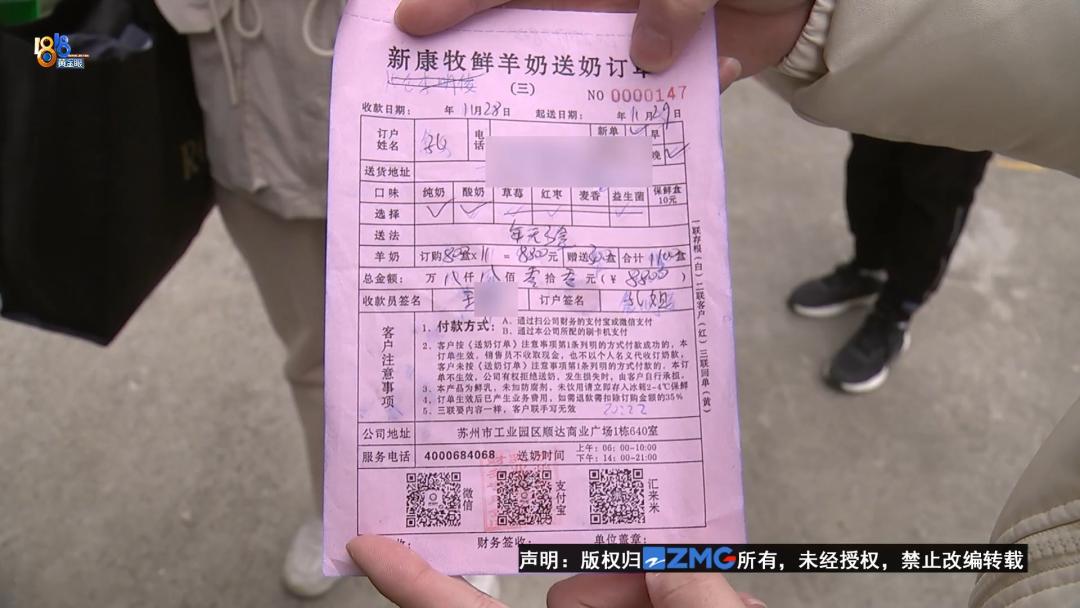 1818
黄金眼
新康牧鲜羊奶送奶订单
(三)
NO 0000147
收款日期: 年11月28日 起送日期: 年11月29日
订户姓名 电话 新单 早
晚
送货地址
口味 纯奶 酸奶 草莓 红枣 麦香 益生菌 保鲜盒10元
选择
送法 每天3盒
羊奶 订购800盒×11=8800元 赠送300盒 合计1100盒
总金额: 万八仟八佰零拾零元(¥8800)
收款员签名 王 订户签名
客户注意事项
1、付款方式: A、通过扫公司财务的支付宝或微信支付
B、通过本公司所配的刷卡机支付
2、客户按《送奶订单》注意事项第1条列明的方式付款成功的,本
订单生效,销售员不收取现金,也不以个人名义代收订奶款,
客户未按《送奶订单》注意事项第1条列明的方式付款的,本订
单不生效,公司有权拒绝送奶,发生损失时,由客户自行承担。
3、本产品为鲜乳,未加防腐剂,未饮用请立即存入冰箱2-4℃保鲜
4、订单生效后已产生业务费用,如需退款需扣除订购金额的35%
5、三联要内容一样,客户联手写无效
一联存根(白)二联客户(红)三联回单(黄)
公司地址 苏州市工业园区顺达商业广场1栋640室
服务电话 4000684068 送奶时间 上午:06:00-10:00
下午:14:00-21:00
微信 支付宝 汇来米
财务签收: 单位盖章:
声明:版权归ZMG所有,未经授权,禁止改编转载